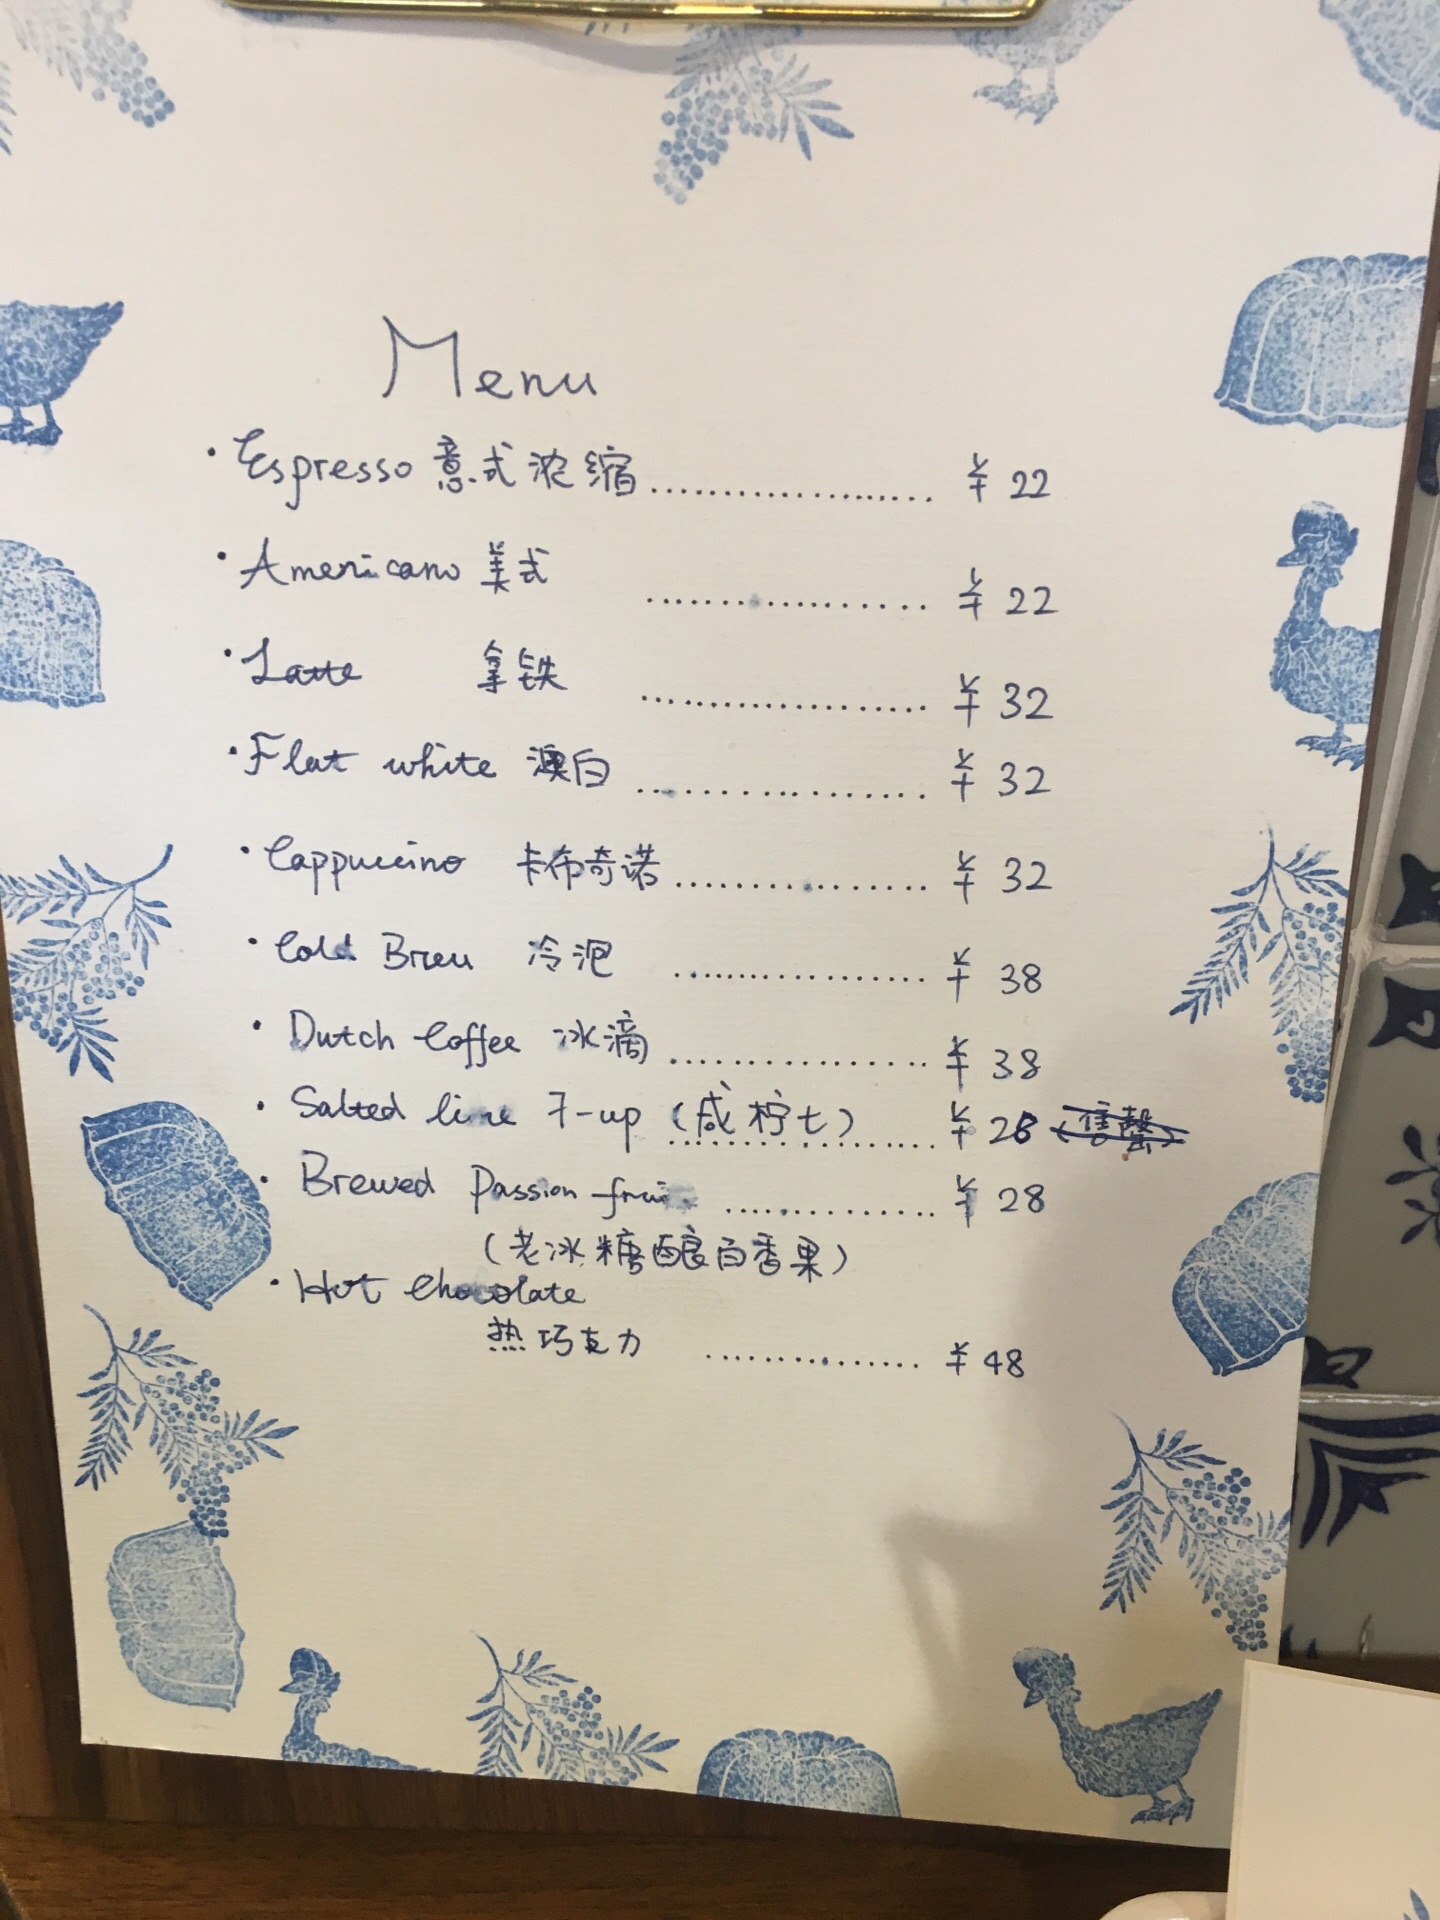 Menu
· Espresso 意式浓缩 .................. ¥ 22
· Americano 美式 .................. ¥ 22
· Latte 拿铁 .................. ¥ 32
· Flat white 澳白 .................. ¥ 32
· Cappuccino 卡布奇诺 .................. ¥ 32
· Cold Brew 冷泡 .................. ¥ 38
· Dutch Coffee 冰滴 .................. ¥ 38
· Salted lime 7-up (咸柠七) .................. ¥ 28
· Brewed Passion fruit .................. ¥ 28
(老冰糖酿百香果)
· Hot Chocolate
热巧克力 .................. ¥ 48